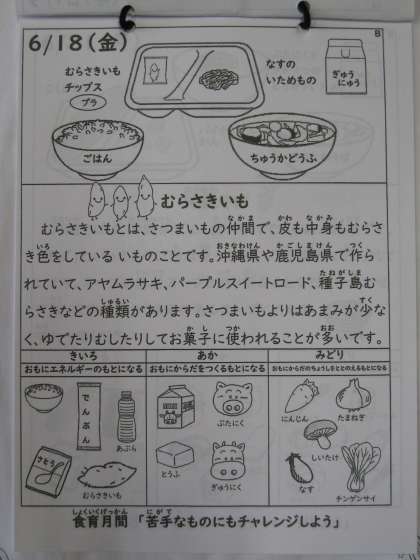 6/18(金)
B
むらさきいも
チップス
プラ
なすの
いためもの
ぎゅう
にゅう
ごはん
ちゅうかどうふ
むらさきいも
むらさきいもとは、さつまいもの仲間で、皮も中身もむらさ
き色をしている いものことです。沖縄県や鹿児島県で作ら
れていて、アヤムラサキ、パープルスイートロード、種子島む
らさきなどの種類があります。さつまいもよりはあまみが少な
く、ゆでたりむしたりしてお菓子に使われることが多いです。
きいろ
おもにエネルギーのもとになる
でんぷん
あぶら
さとう
むらさきいも
あか
おもにからだをつくるもとになる
ぶたにく
とうふ
ぎゅうにく
みどり
おもにからだのちょうしをととのえるもとになる
にんじん
たまねぎ
しいたけ
なす
チンゲンサイ
食育月間 「苦手なものにもチャレンジしよう」